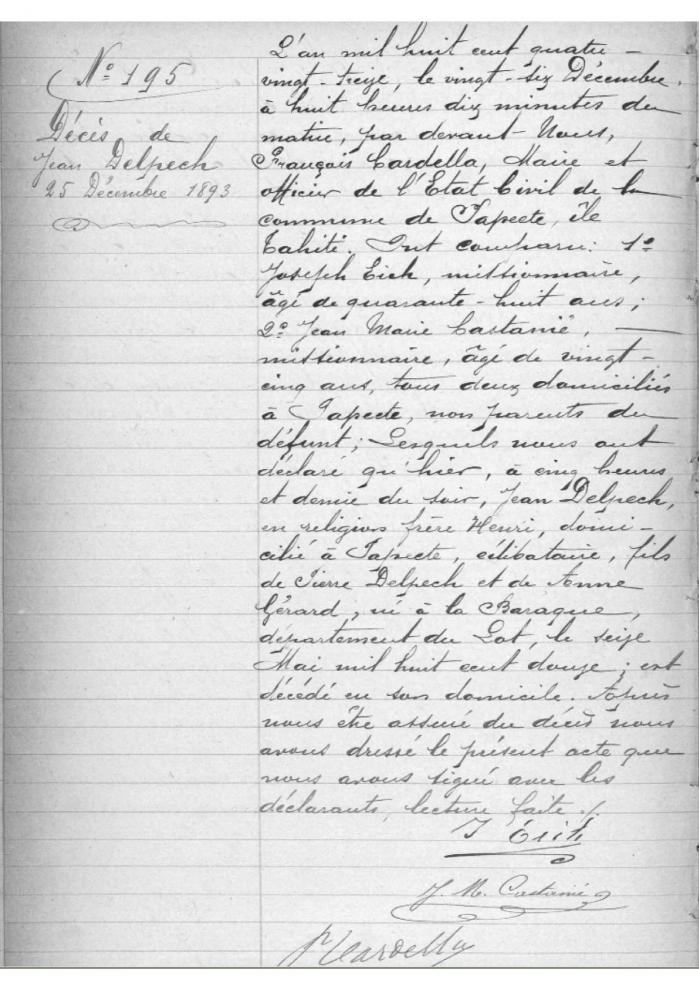 N° 195
Décès de
Jean Delpech
25 Décembre 1893
L'an mil huit cent quatre-
vingt-treize, le vingt-six Décembre,
à huit heures dix minutes du
matin, par devant Nous,
François Cardella, Maire et
officier de l'Etat Civil de la
commune de Papeete, île
Tahiti. Ont comparu: 1°
Joseph Eich, missionnaire,
âgé de quarante-huit ans;
2° Jean Marie Castanié,
missionnaire, âgé de vingt-
cinq ans, tous deux domiciliés
à Papeete, non parents du
défunt; Lesquels nous ont
déclaré qu'hier, à cinq heures
et demie du soir, Jean Delpech,
en religion frère Henri, domi-
cilié à Papeete, célibataire, fils
de Pierre Delpech et de Anne
Gérard, né à la Baraque,
département du Lot, le seize
Mai mil huit cent douze; est
décédé en son domicile. Après
nous être assuré du décès nous
avons dressé le présent acte que
nous avons signé avec les
déclarants, lecture faite ./.
J Eich
J. M. Castanié
Fr Cardella